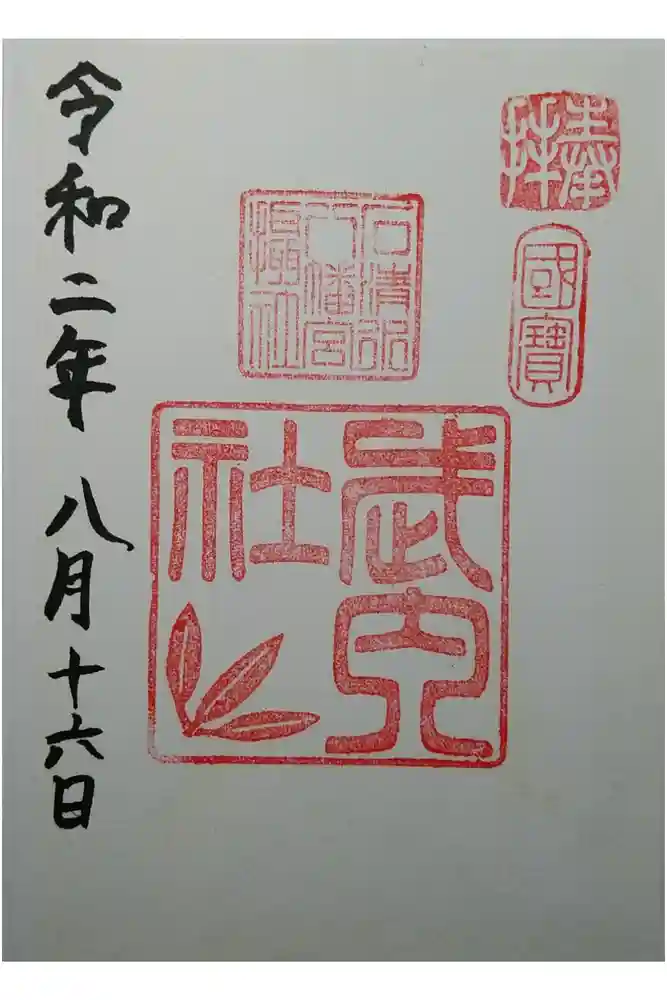 奉拝
國寶
石清水
八幡宮
摂社
武内
社
令和二年 八月十六日